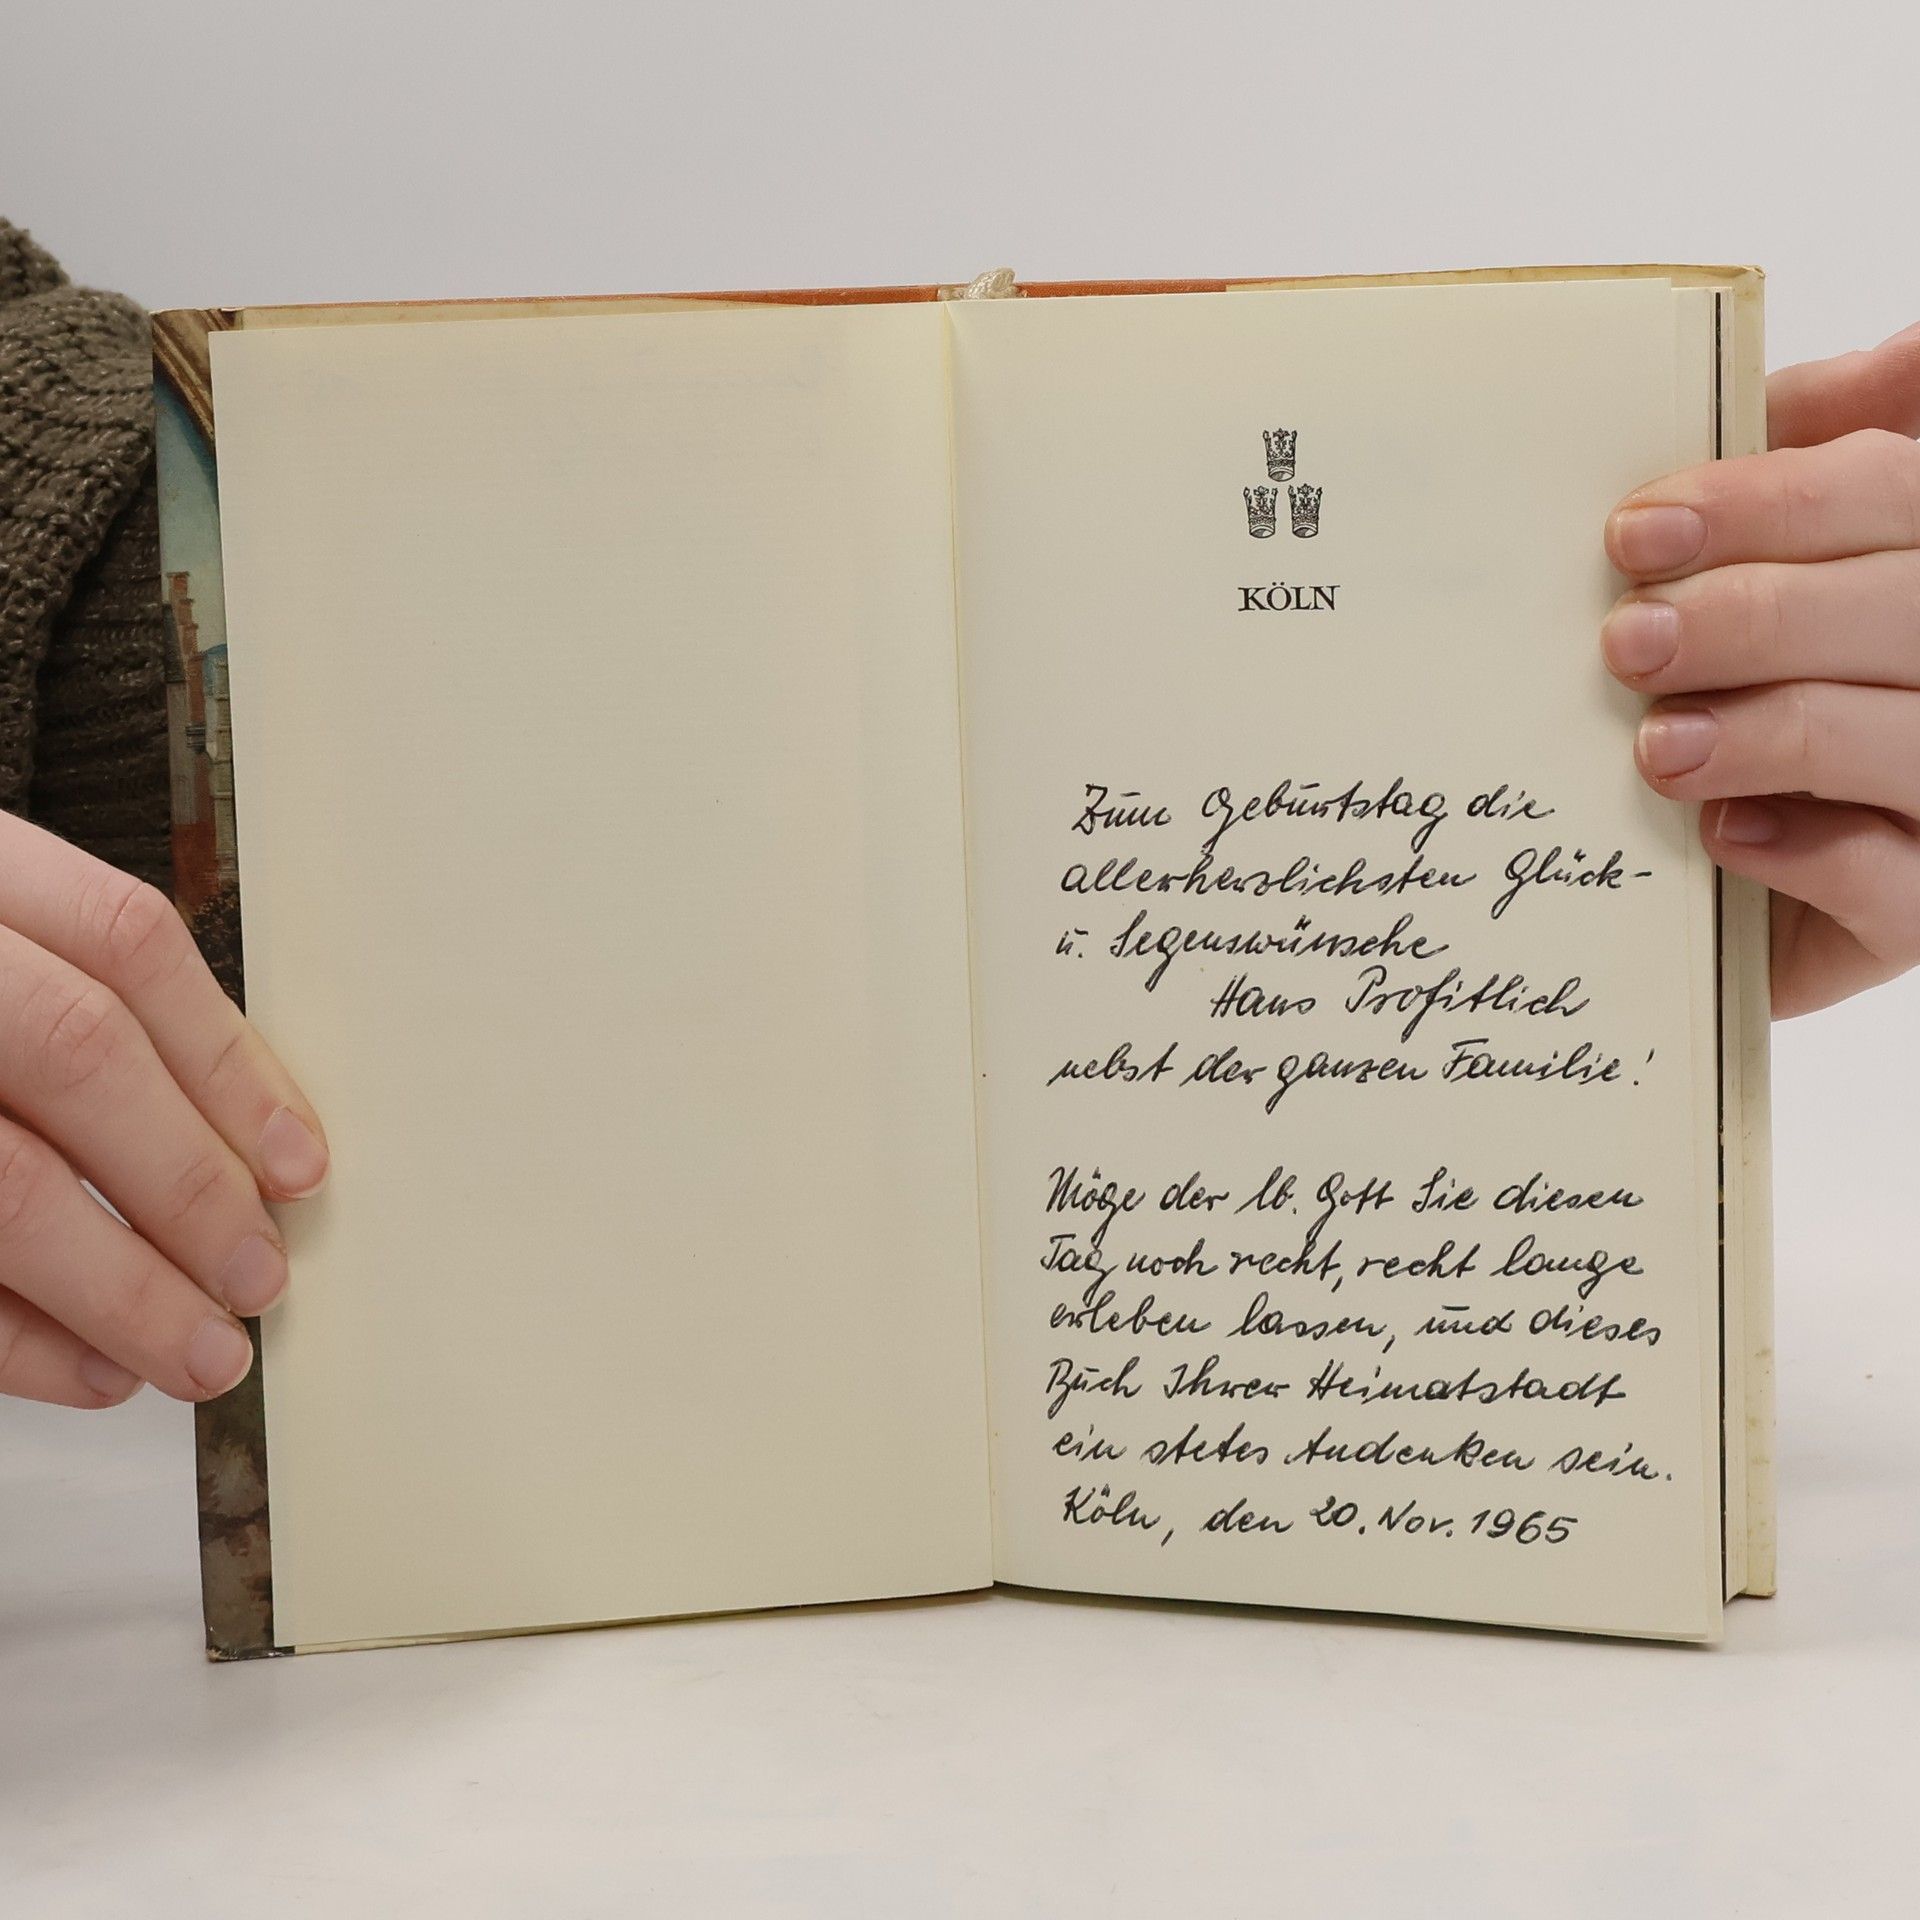 KÖLN
Zum Geburtstag die
allerherzlichsten Glück-
u. Segenswünsche
Hans Profitlich
nebst der ganzen Familie!
Möge der lb. Gott Sie diesen
Tag noch recht, recht lange
erleben lassen, und dieses
Buch Ihrer Heimatstadt
ein stetes Andenken sein.
Köln, den 20. Nov. 1965